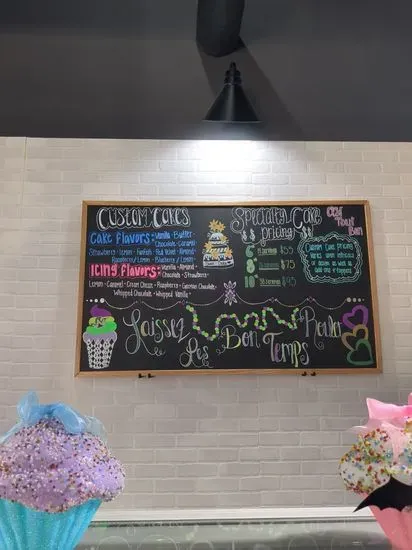 Custom Cakes
Cake flavors: Vanilla · Butter ·
Chocolate · Caramel
Strawberry · Lemon · Funfetti · Red Velvet · Almond
Raspberry/Lemon · Blueberry/Lemon
Icing flavors: Vanilla · Almond
Chocolate · Strawberry
Lemon · Caramel · Cream Cheese · Raspberry · German Chocolate
Whipped Chocolate · Whipped Vanilla
Specialty Cake
Pricing
$$ $$
6" $55
8" $75
10" $95
C'est
Tout
Bon
Custom Cake pricing
varies upon intricacy
of design as well as
add-ons & toppers
Laissez Les Bon Temps Rouler